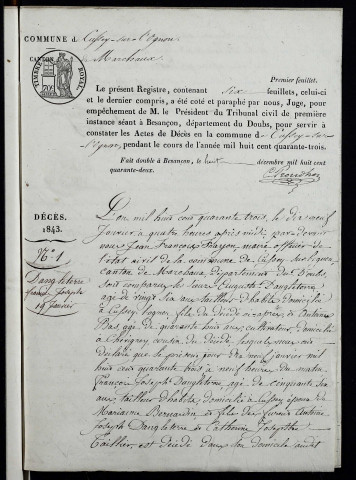 COMMUNE d Cussey-sur-l'Ognon
CANTON
Marchaux
TIMBRE ROYAL
Premier feuillet.
Le présent Registre, contenant six feuillets, celui-ci
et le dernier compris, a été coté et paraphé par nous, Juge, pour
empêchement de M. le Président du Tribunal civil de première
instance séant à Besançon, département du Doubs, pour servir à
constater les Actes de Décès en la commune de Cussey-sur-
l'Ognon, pendant le cours de l'année mil huit cent quarante-trois.
Fait double à Besançon, le huit décembre mil huit cent
quarante-deux.
DÉCÈS.
1843.
N° 1
Dangleterre
françois Joseph
19 janvier
L'an mil huit cent quarante trois, le dix neuf
Janvier à quatre heures après midi, par devant
nous Jean François maire officier de
l'état civil de la commune de Cussey sur l'ognon
Canton de Marchaux, département du Doubs,
sont comparus les sieurs Auguste Dangleterre
age de vingt six ans tailleur d'habits domicilié
à Cussey l'ognon, fils du décédé ci-après, et Antoine
Bas age de quarante huit ans cultivateur domicilié
à du décédé, lesquels nous ont
déclaré que le jour dix neuf janvier mil
huit cent quarante trois à neuf heures du matin
François Joseph Dangleterre, age de cinquante six
ans, tailleur d'habits, domicilié à Cussey époux de
Marianne Bernardin et fils des sieurs Antoine
Joseph Dangleterre et Catherine Josephte
Taillier, est décédé dans son domicile audit